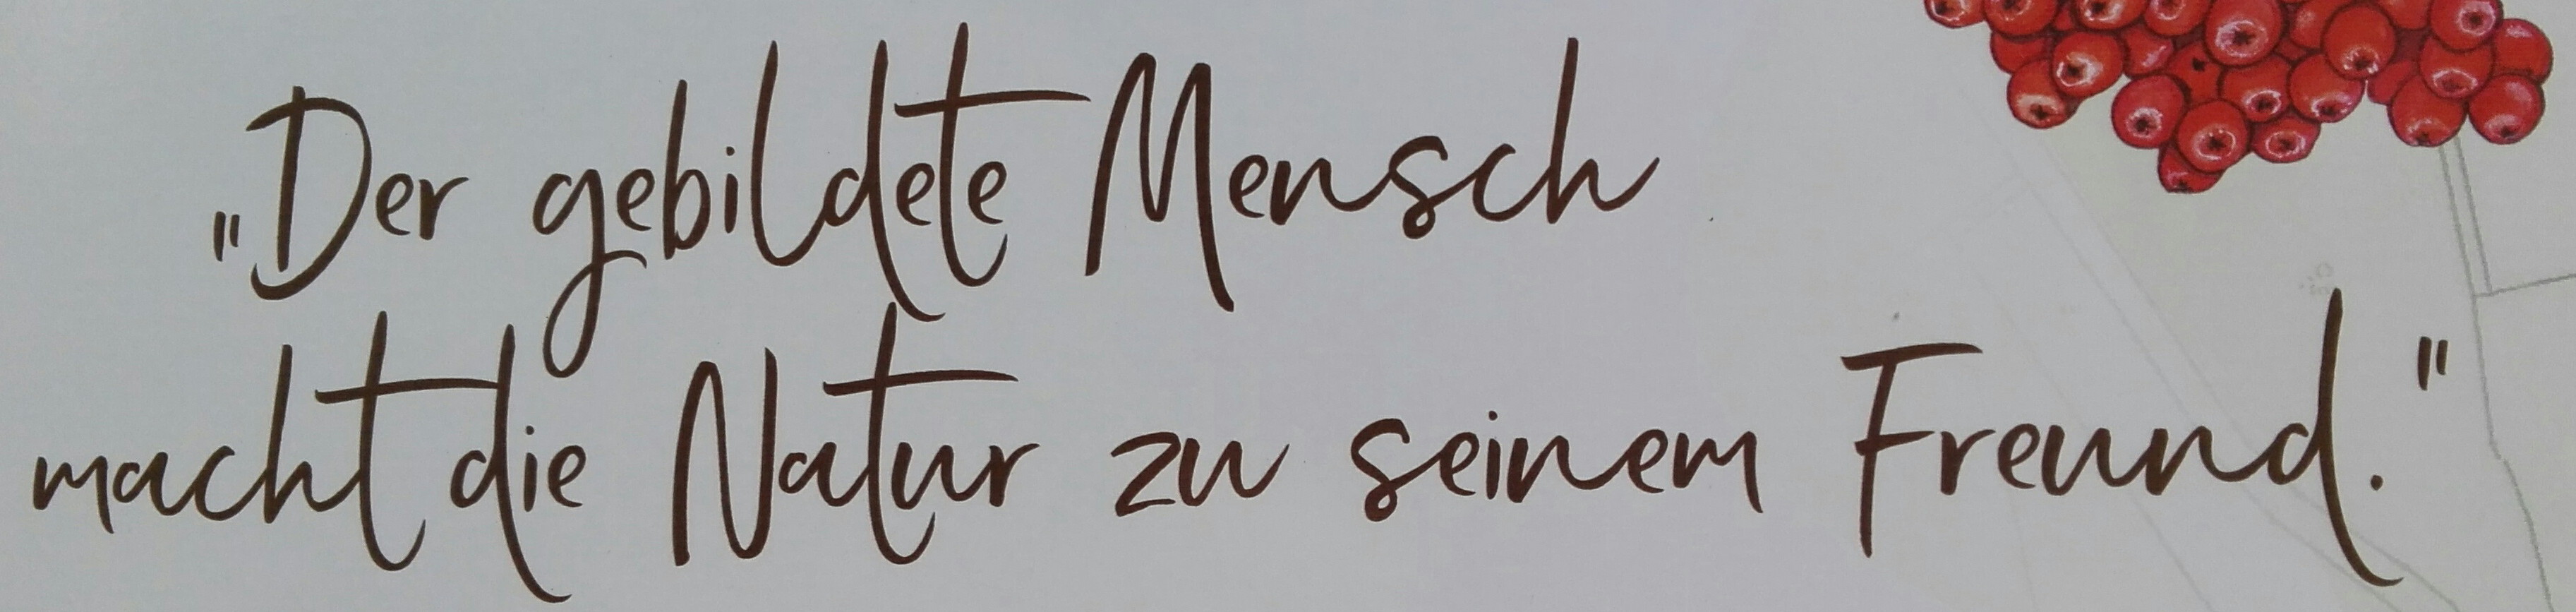 „Der gebildete Mensch
macht die Natur zu seinem Freund."